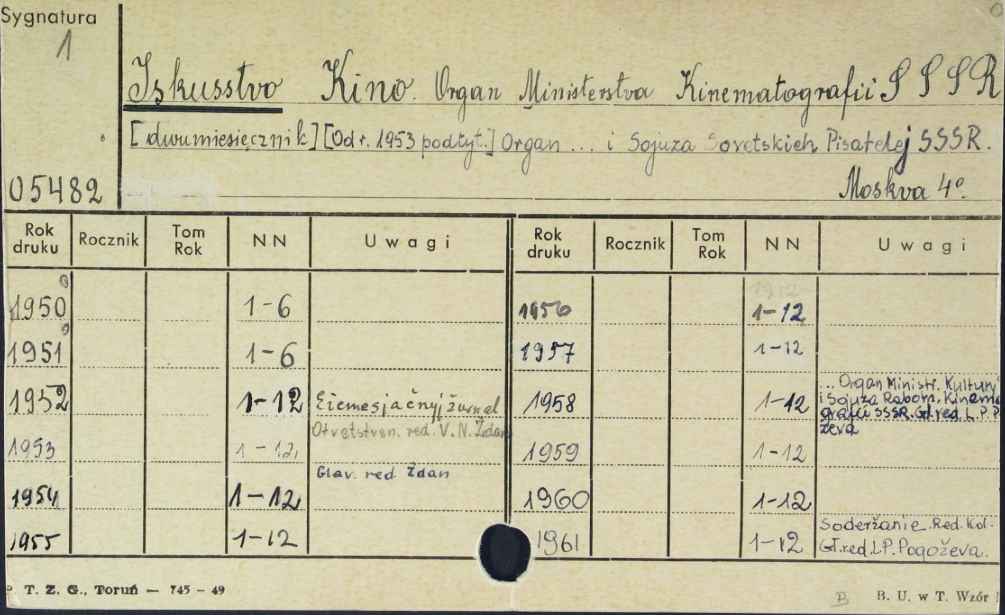 Sygnatura
1
Iskusstvo Kino. Organ Ministerstva Kinematografii SSSR
[dwumiesięcznik] [Od r. 1953 podtyt.] Organ ... i Sojuza Sovetskich Pisatelej SSSR.
05482 Moskva 4°
Rok druku Rocznik Tom Rok NN Uwagi Rok druku Rocznik Tom Rok NN Uwagi
1950 1-6 1956 1-12
1951 1-6 1957 1-12
1952 1-12 Ežemesjačnyj žurnal 1958 1-12 ... Organ Ministr. Kultury
i Sojuza Rabotn. Kinema
grafii SSSR. Gł. red. L. P. P
ževa
Otvetstven. red. V. N. Ždan
1953 1-12 1959 1-12
Glav. red Ždan
1954 1-12 1960 1-12
1955 1-12 1961 1-12 Soderžanie. Red. Kol-
Gł. red. L.P. Pogoževa.
P. T. Z. G., Toruń — 745 - 49 B B. U. w T. Wzór